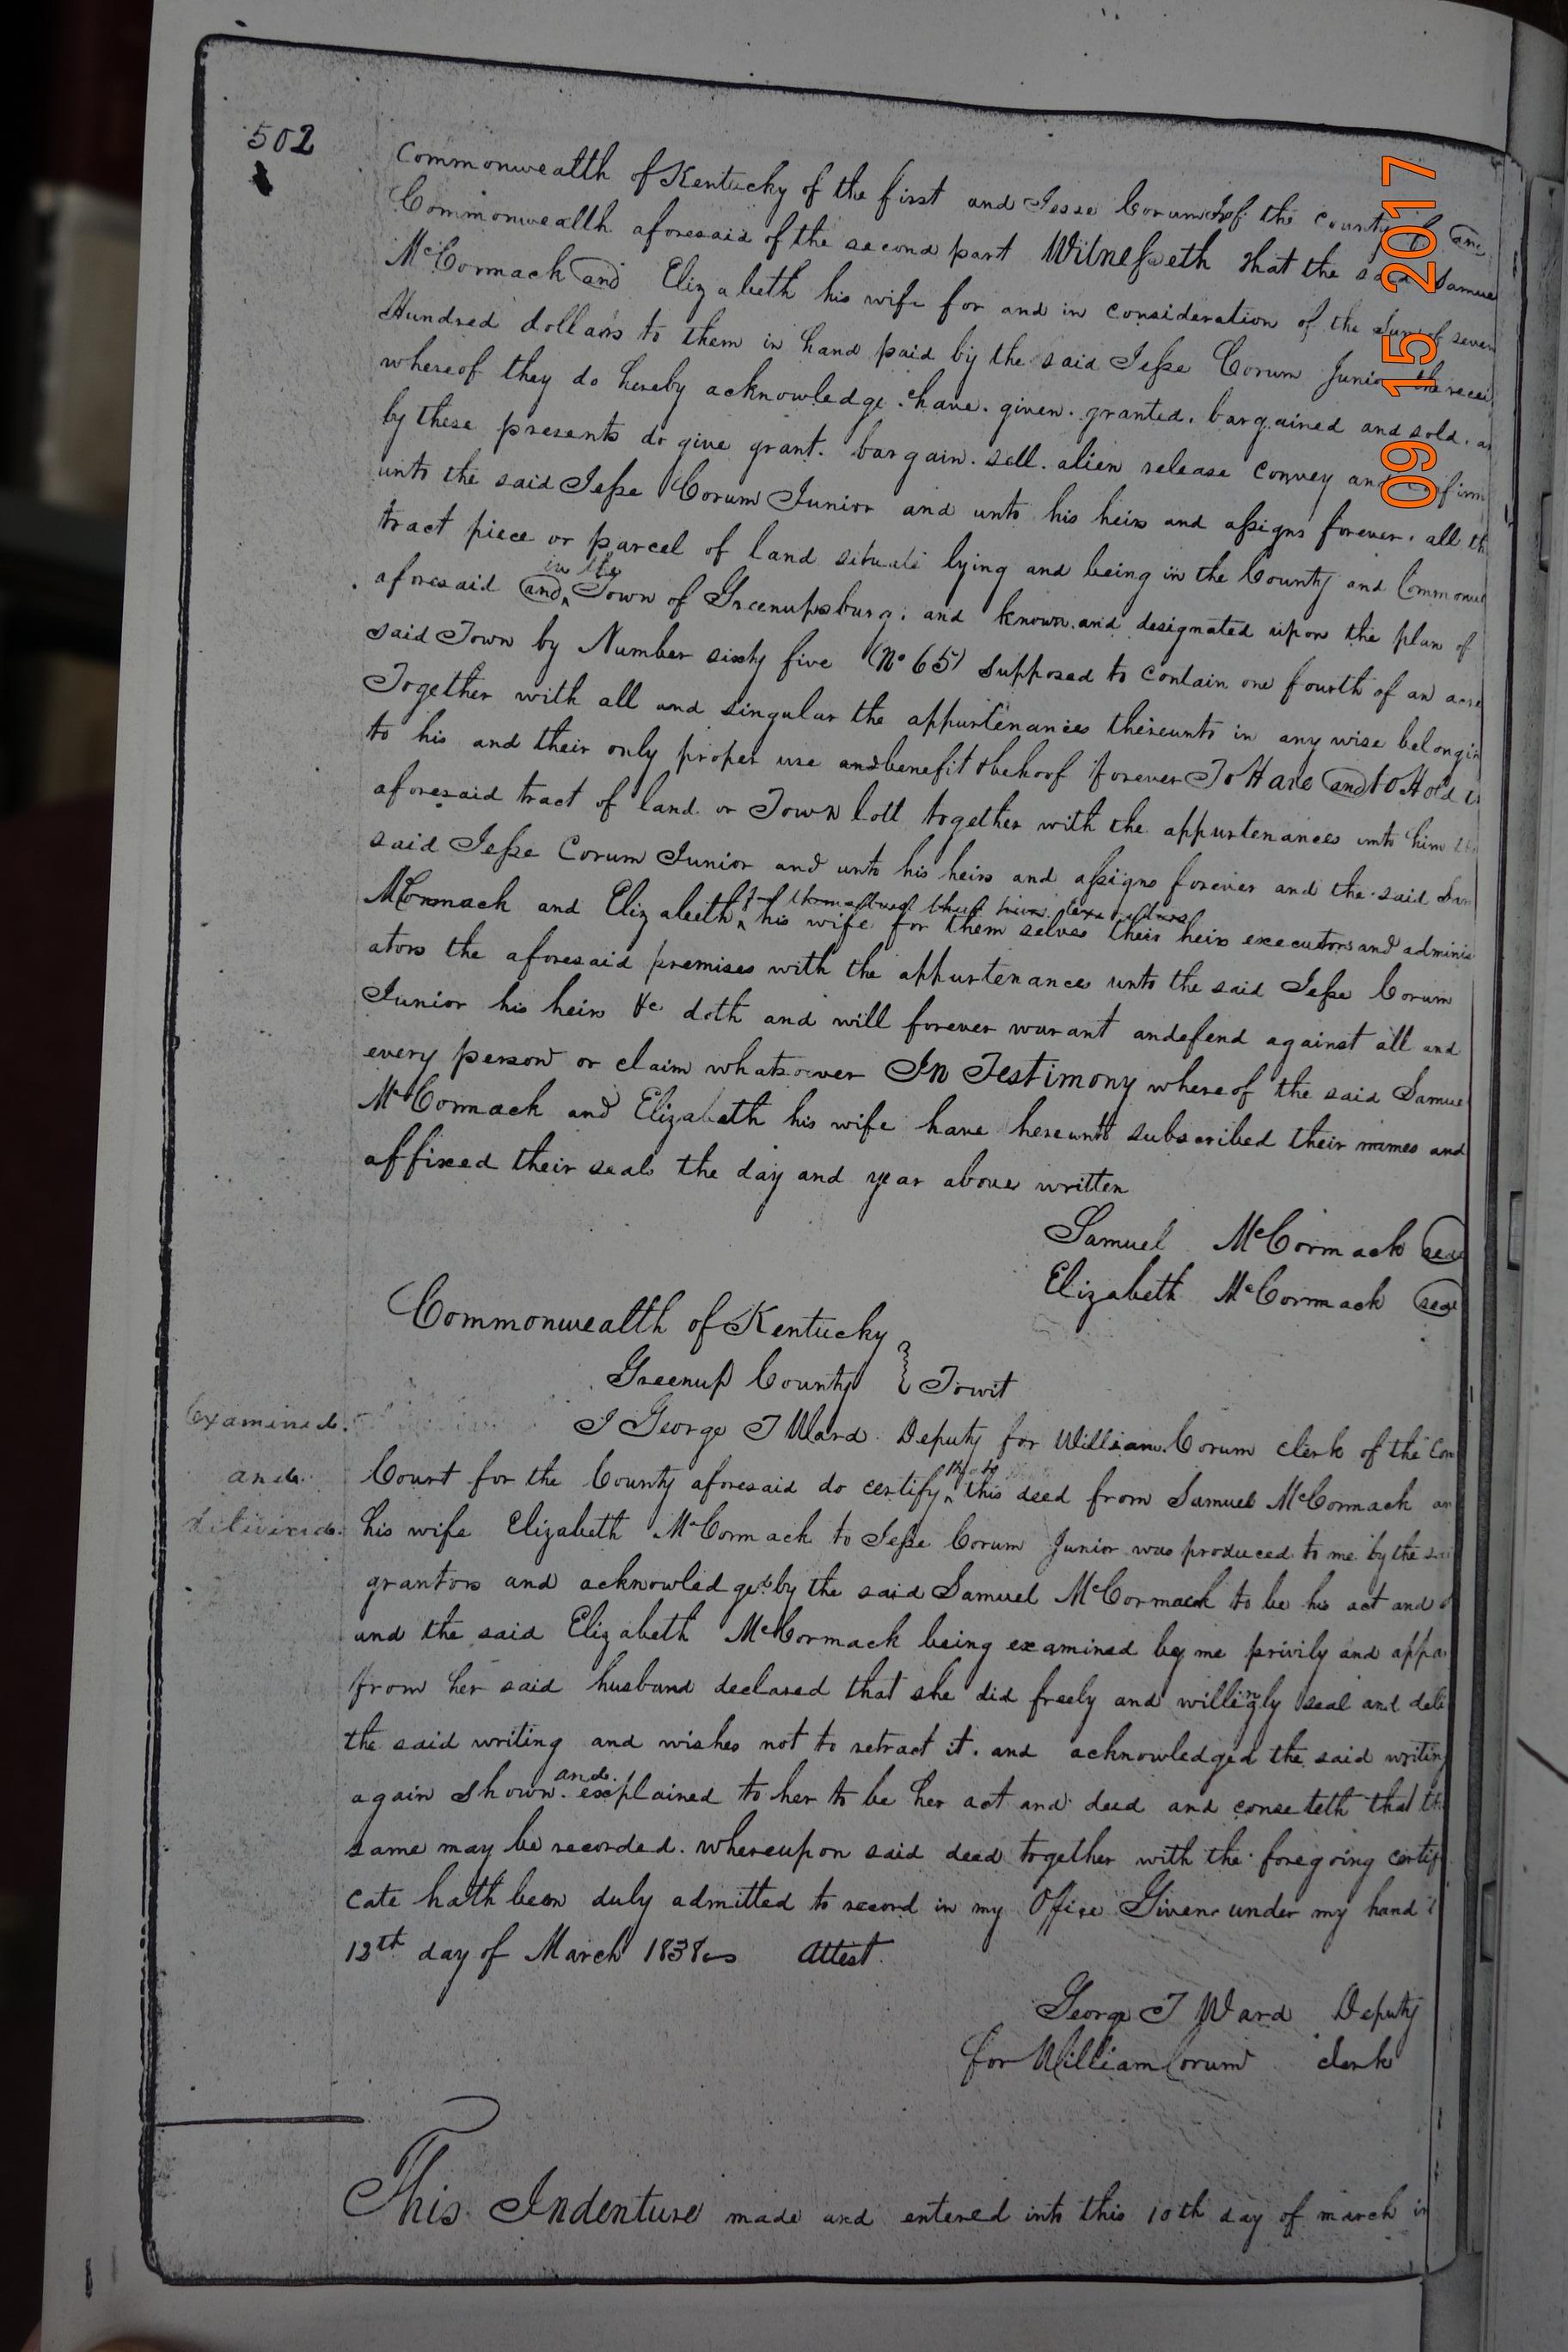 502
Commonwealth of Kentucky of the first and Jesse Corum Jr of the county of and
Commonwealth aforesaid of the second part Witnesseth that the said Samuel
McCormack and Elizabeth his wife for and in consideration of the sum of seven
Hundred dollars to them in hand paid by the said Jesse Corum Junior the recei
whereof they do hereby acknowledge. have. given. granted. bargained and sold. a
by these presents do give grant. bargain. sell. alien release convey and confirm
unto the said Jesse Corum Junior and unto his heirs and assigns forever. all th
tract piece or parcel of land situate lying and being in the County and Commonwe
aforesaid and in the Town of Greenupsburg. and known. and designated upon the plan of
said Town by Number sixty five (No 65) Supposed to contain one fourth of an acre
Together with all and singular the appurtenances thereunto in any wise belongin
to his and their only proper use and benefit & behoof forever To Have and to Hold
aforesaid tract of land or Town lott together with the appurtenances unto him the
said Jesse Corum Junior and unto his heirs and assigns forever and the said Sam
McCormack and Elizabeth his wife for them selves their heirs executors and adminis
ators the aforesaid premises with the appurtenances unto the said Jesse Corum
Junior his heirs &c doth and will forever warant andefend against all and
every person or claim whatsoever In Testimony whereof the said Samuel
McCormack and Elizabeth his wife have hereunto subscribed their names and
affixed their seals the day and year above written
Samuel McCormack seal
Elizabeth McCormack seal
Commonwealth of Kentucky
Greenup County } Towit
Examined.
and.
delivered.
I George T Ward Deputy for William Corum clerk of the Coun
Court for the County aforesaid do certify that this deed from Samuel McCormack an
his wife Elizabeth McCormack to Jesse Corum Junior was produced to me by the sai
grantors and acknowledged by the said Samuel McCormack to be his act and d
and the said Elizabeth McCormack being examined by me privily and appa
from her said husband declared that she did freely and willingly seal and deli
the said writing and wishes not to retract it. and acknowledged the said writing
again shown. and explained to her to be her act and deed and conseteth that th
same may be recorded. whereupon said deed together with the foregoing certif
cate hath been duly admitted to record in my Office Given under my hand
12th day of March 1838 Attest.
George T Ward Deputy
for William Corum clerk
This Indenture made and entered into this 10th day of march in
09 15 2017